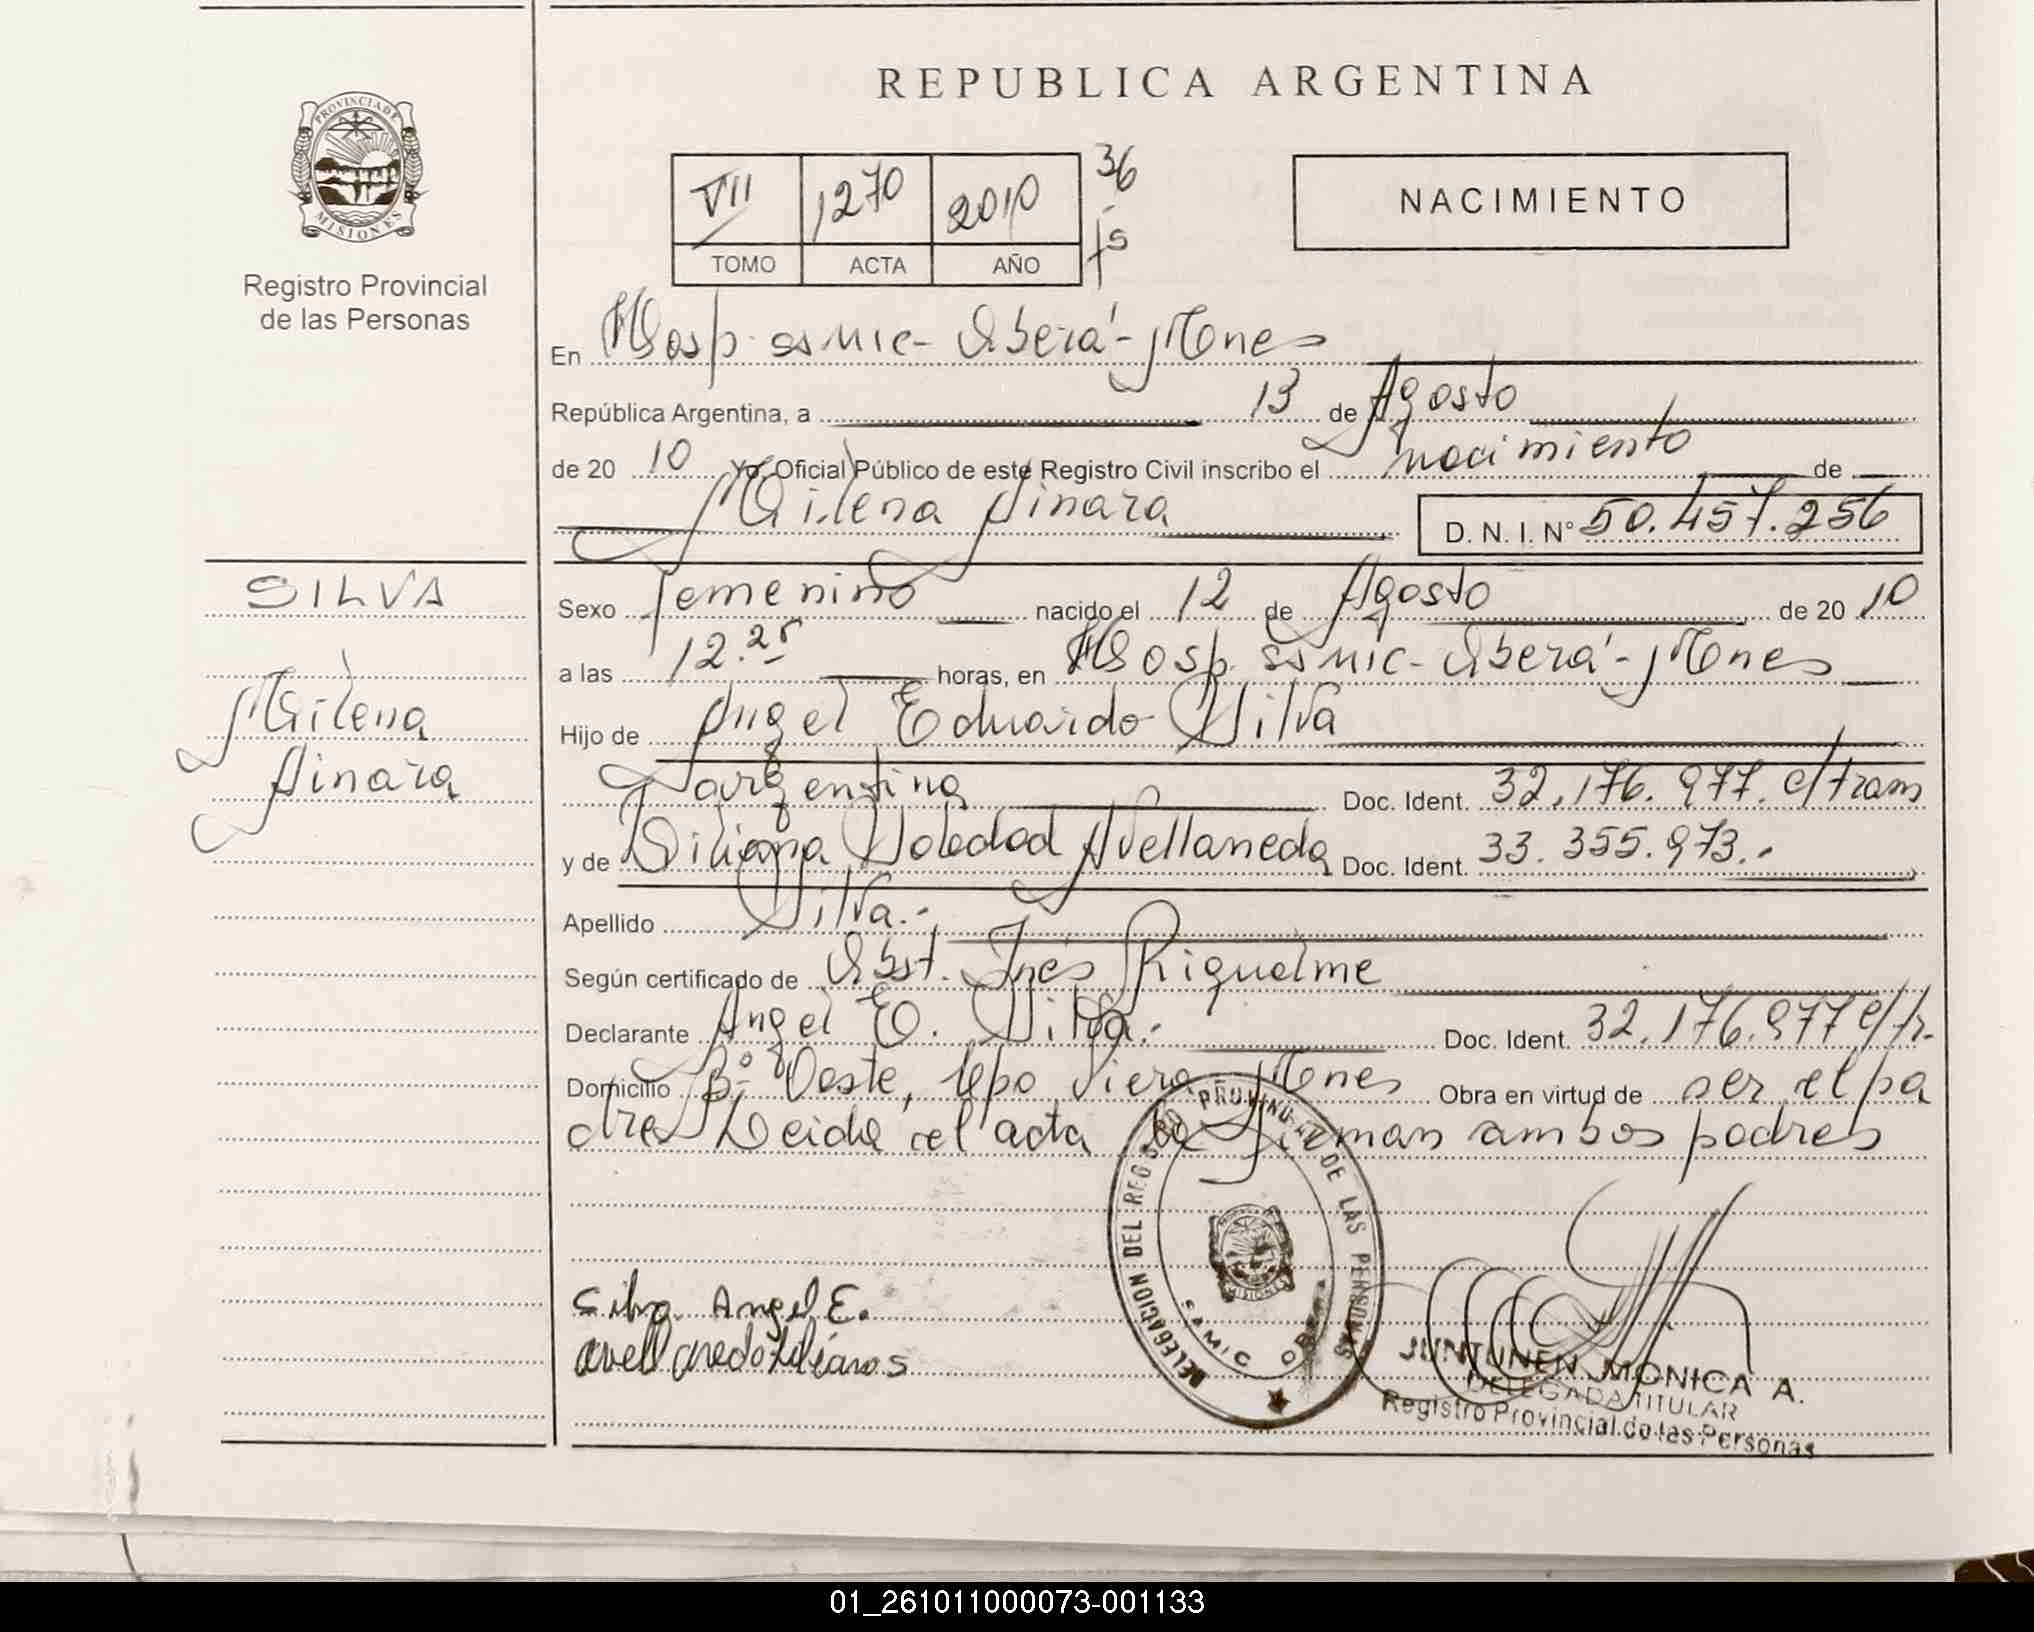 REPUBLICA ARGENTINA
PROVINCIA DE
MISIONES
Registro Provincial
de las Personas
VII 1270 2010 36
TOMO ACTA AÑO fs
NACIMIENTO
En Hosp. samic - Oberá - Mnes
República Argentina, a 13 de Agosto
de 20 10 Yo, Oficial Público de este Registro Civil inscribo el nacimiento de
Milena Ainara D. N. I. N° 50.457.256
SILVA
Milena
Ainara
Sexo femenino nacido el 12 de Agosto de 20 10
a las 12.25 horas, en Hosp. samic - Oberá - Mnes
Hijo de Angel Eduardo Silva
argentina Doc. Ident. 32.176.977. c/tram
y de Liliana Soledad Avellaneda Doc. Ident. 33.355.973.-
Apellido Silva.-
Según certificado de Obst. Inés Riquelme
Declarante Angel E. Silva.- Doc. Ident. 32.176.977 c/tr.
Domicilio B° Oeste, Cpo Viera Mnes Obra en virtud de ser el pa
dre Leida el acta la firman ambos padres
Silva Angel E.
DELEGACION DEL REGISTRO PROVINCIAL DE LAS PERSONAS
MISIONES
SAMIC OBERA
JUNTUNEN MONICA A.
DELEGADA TITULAR
Registro Provincial de las Personas
01_261011000073-001133